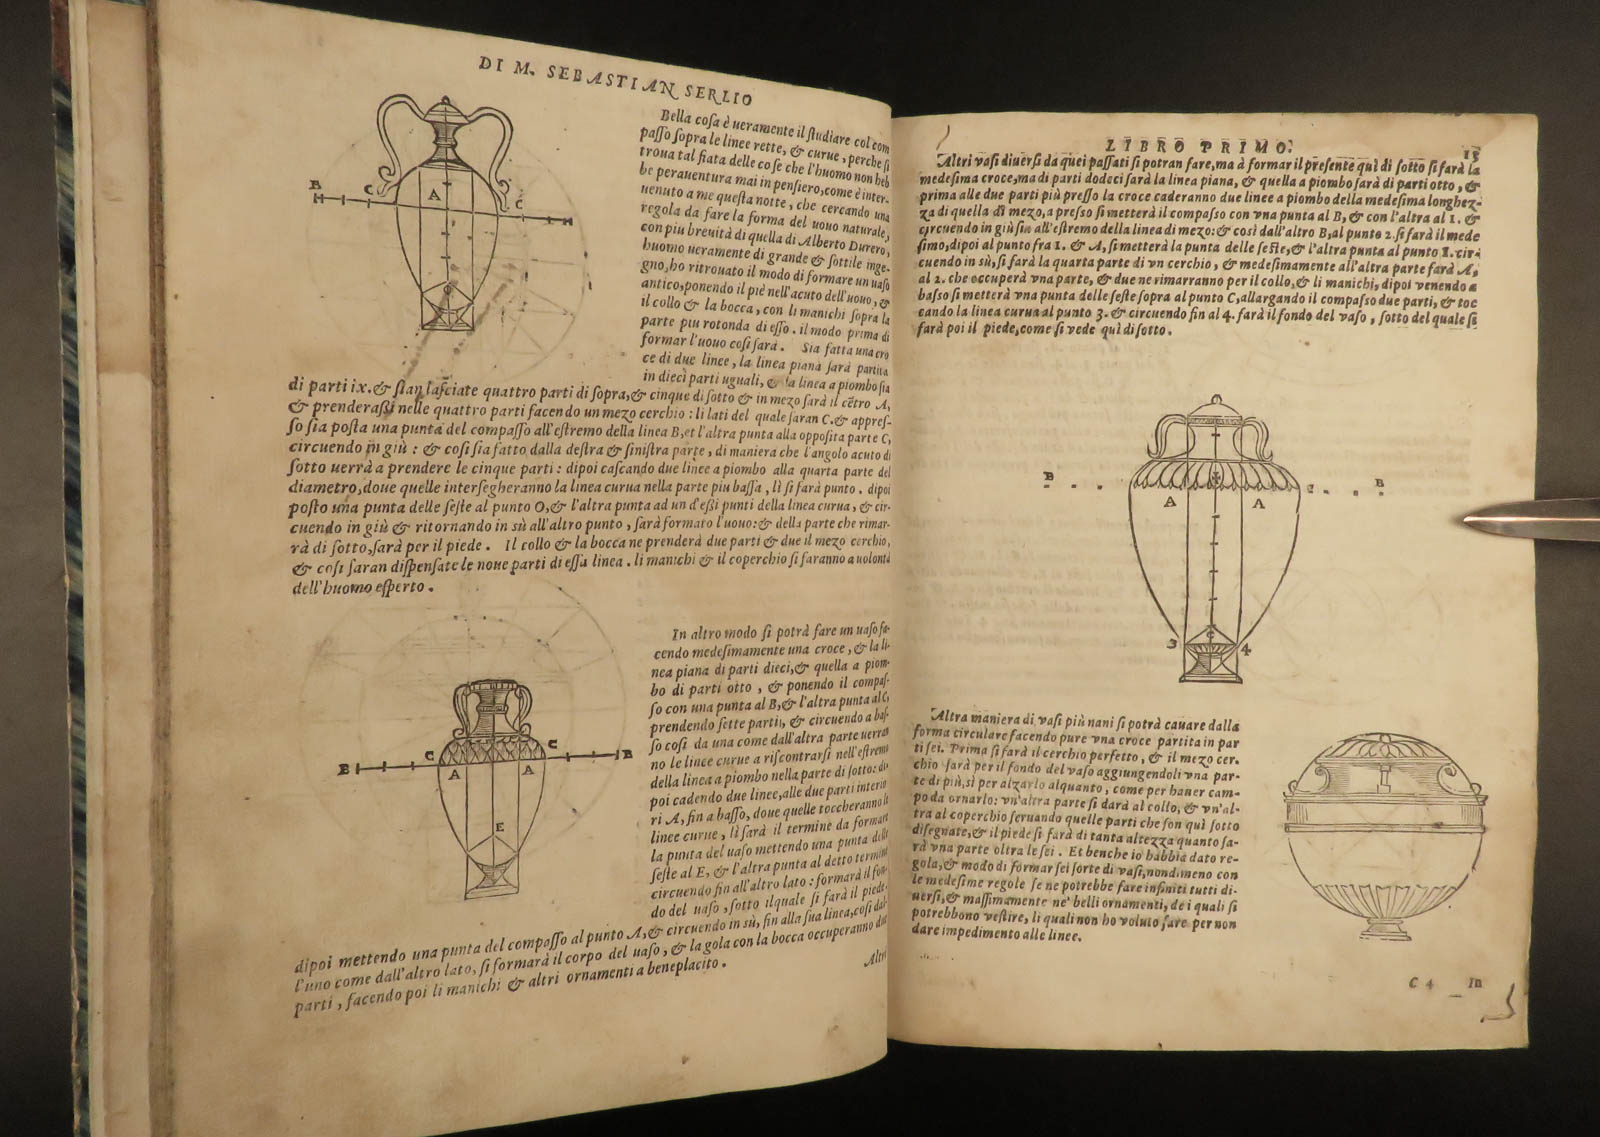 DI M. SEBASTIAN SERLIO
Bella coſa è ueramente il ſtudiare col com
paſſo ſopra le linee rette, & curue, perche ſi
troua tal fiata delle coſe che l'huomo non heb
be perauentura mai in penſiero, come è inter-
uenuto a me queſta notte, che cercando una
regola da fare la forma del uouo naturale,
con piu breuità di quella di Alberto Durero,
huomo ueramente di grande & ſottile inge-
gno, ho ritrouato il modo di formare un uaſo
antico, ponendo il piè nell'acuto dell'uouo, &
il collo & la bocca, con li manichi ſopra la
parte piu rotonda di eſſo. il modo prima di
formar l'uouo coſi ſarà. Sia fatta una cro
ce di due linee, la linea piana ſarà partita
in dieci parti uguali, & la linea a piombo ſia
di parti ix. & ſian laſciate quattro parti di ſopra, & cinque di ſotto & in mezo ſarà il cētro A,
& prenderaßi nelle quattro parti facendo un mezo cerchio: li lati del quale ſaran C, & appreſ-
ſo ſia poſta una punta del compaſſo all'eſtremo della linea B, et l'altra punta alla oppoſita parte C,
circuendo in giù: & coſi ſia fatto dalla deſtra & ſiniſtra parte, di maniera che l'angolo acuto di
ſotto uerrà a prendere le cinque parti: dipoi caſcando due linee a piombo alla quarta parte del
diametro, doue quelle interſegheranno la linea curua nella parte piu baſſa, lì ſi farà punto. dipoi
poſto una punta delle ſeſte al punto O, & l'altra punta ad un d'eßi punti della linea curua, & cir-
cuendo in giù & ritornando in sù all'altro punto, ſarà formato l'uouo: & della parte che rimar-
rà di ſotto, ſarà per il piede. Il collo & la bocca ne prenderà due parti & due il mezo cerchio,
& coſi ſaran diſpenſate le noue parti di eſſa linea. li manichi & il coperchio ſi faranno a uolontà
dell'huomo eſperto.
B C A C
O
In altro modo ſi potrà fare un uaſo fa-
cendo medeſimamente una croce, & la li-
nea piana di parti dieci, & quella a piom
bo di parti otto, & ponendo il compaſ-
ſo con una punta al B, & l'altra punta al C,
prendendo ſette parti, & circuendo a baſ-
ſo coſi da una come dall'altra parte uerran
no le linee curue a riſcontrarſi nell'eſtremo
della linea a piombo nella parte di ſotto: di
poi cadendo due linee, alle due parti interio
ri A, fin a baſſo, doue quelle toccheranno le
linee curue, lì ſarà il termine da formare
la punta del uaſo mettendo una punta delle
ſeſte al E, & l'altra punta al detto termine
circuendo fin all'altro lato: formarà il fon
do del uaſo, ſotto il quale ſi farà il piede.
dipoi mettendo una punta del compaſſo al punto A, & circuendo in sù, fin alla ſua linea, coſi dal-
l'uno come dall'altro lato, ſi formarà il corpo del uaſo, & la gola con la bocca occuperanno due
parti, facendo poi li manichi & altri ornamenti a beneplacito.
Altri
B C C B
A A
E
LIBRO PRIMO.
15
Altri vaſi diuerſi da quei paſſati ſi potran fare, ma à formar il preſente quì di ſotto ſi farà la
medeſima croce, ma di parti dodeci ſarà la linea piana, & quella a piombo ſarà di parti otto, &
prima alle due parti più preſſo la croce caderanno due linee a piombo della medeſima longhez-
za di quella di mezo, a preſſo ſi metterà il compaſſo con vna punta al B, & con l'altra al 1. &
circuendo in giù ſia all'eſtremo della linea di mezo: & così dall'altro B, al punto 2. ſi farà il mede
ſimo, dipoi al punto fra 1. & A, ſi metterà la punta delle ſeſte, & l'altra punta al punto 1. cir-
cuendo in sù, ſi farà la quarta parte di vn cerchio, & medeſimamente all'altra parte farà A,
al 2. che occuperà vna parte, & due ne rimarranno per il collo, & li manichi, dipoi venendo a
baſſo ſi metterà vna punta delle ſeſte ſopra al punto C, allargando il compaſſo due parti, & toc
cando la linea curua al punto 3. & circuendo fin al 4. farà il fondo del vaſo, ſotto del quale ſi
farà poi il piede, come ſi vede quì di ſotto.
B B
A A
C
3 4
Altra maniera di vaſi più nani ſi potrà cauare dalla
forma circulare facendo pure vna croce partita in par
ti ſei. Prima ſi farà il cerchio perfetto, & il mezo cer-
chio ſarà per il fondo del vaſo aggiungendoli vna par-
te di più, sì per alzarlo alquanto, come per hauer cam-
po da ornarlo: vn'altra parte ſi darà al collo, & vn'al-
tra al coperchio ſeruando quelle parti che ſon quì ſotto
diſegnate, & il piede ſi farà di tanta altezza quanto ſa-
rà vna parte oltra le ſei. Et benche io habbia dato re-
gola, & modo di formar ſei ſorte di vaſi, nondimeno con
le medeſime regole ſe ne potrebbe fare infiniti tutti di-
uerſi, & maſſimamente ne' belli ornamenti, de i quali ſi
potrebbono veſtire, li quali non ho voluto fare per non
dare impedimento alle linee.
C 4 In